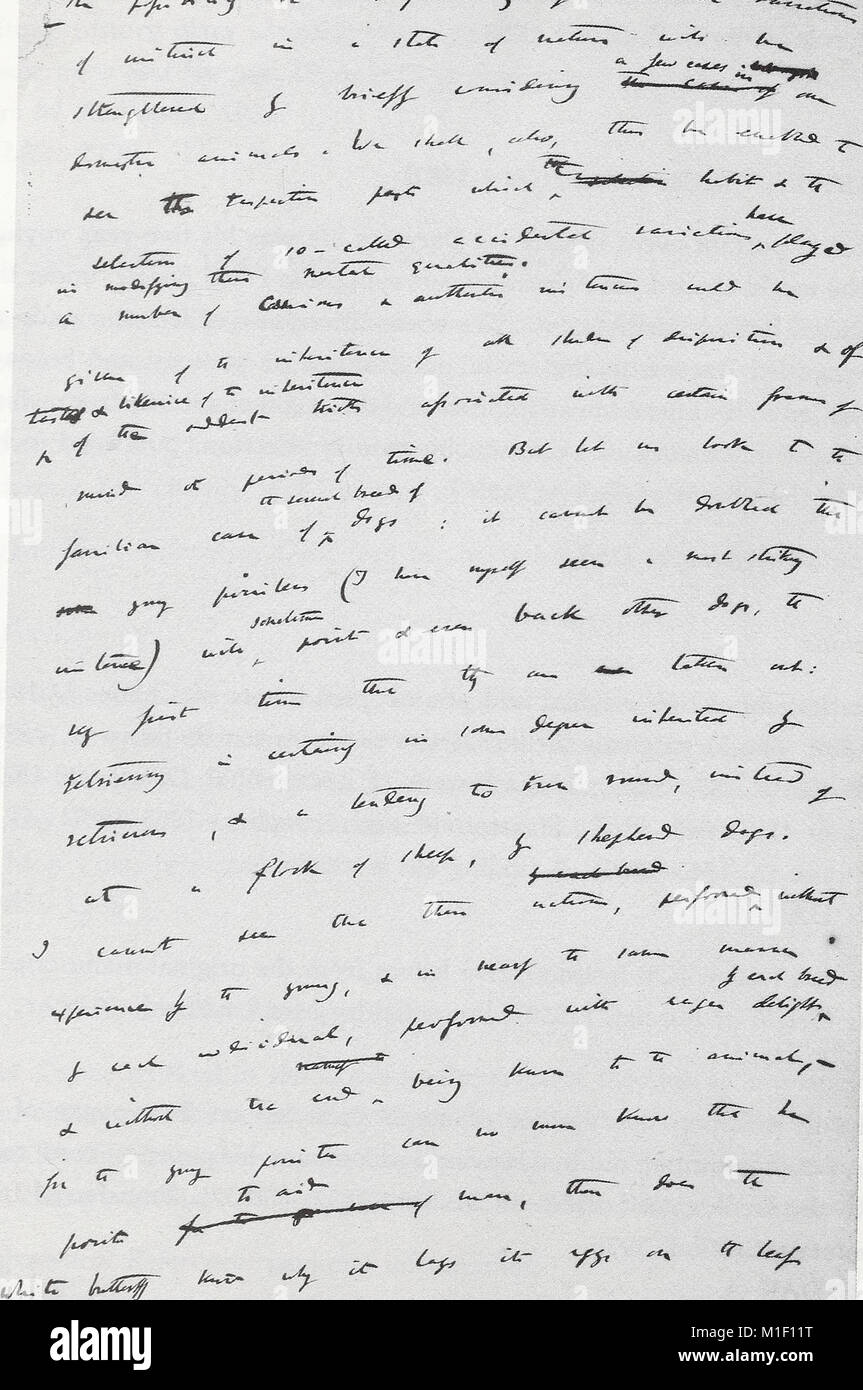 the possibility variations
of instinct in a state of nature will be
a few cases in
strengthened by briefly considering the cases of our
domestic animals. We shall, also, thus be enabled to
see the respective parts which the habit & the
have
selection of so-called accidental variations played
in modifying the mental qualities.
a number of curious & authentic instances could be
given of the inheritance of all shades of disposition & of
tastes & likewise of the inheritance
of the oddest tricks associated with certain frames of
mind or periods of time. But let us look to the
the several breeds of
familiar case of dogs: it cannot be doubted that
young pointers (I have myself seen a most striking
sometimes
instance) will point & even back other dogs, the
very first time that they are taken out:
retrieving is certainly in some degree inherited by
retrievers, & a tendency to run round, instead of
at a flock of sheep, by shepherd dogs.
by each breed
I cannot see that these actions, performed without
experience by the young, & in nearly the same manner
by each breed
by each individual, performed with eager delight,
& without the end being known to the animal,—
for the young pointer can no more know that he
to aid
points of man, than does the
white butterfly know why it lays its eggs on the leaf
alamy
alamy
alamy
alamy
alamy
alamy
Image ID: M1F11T
www.alamy.com